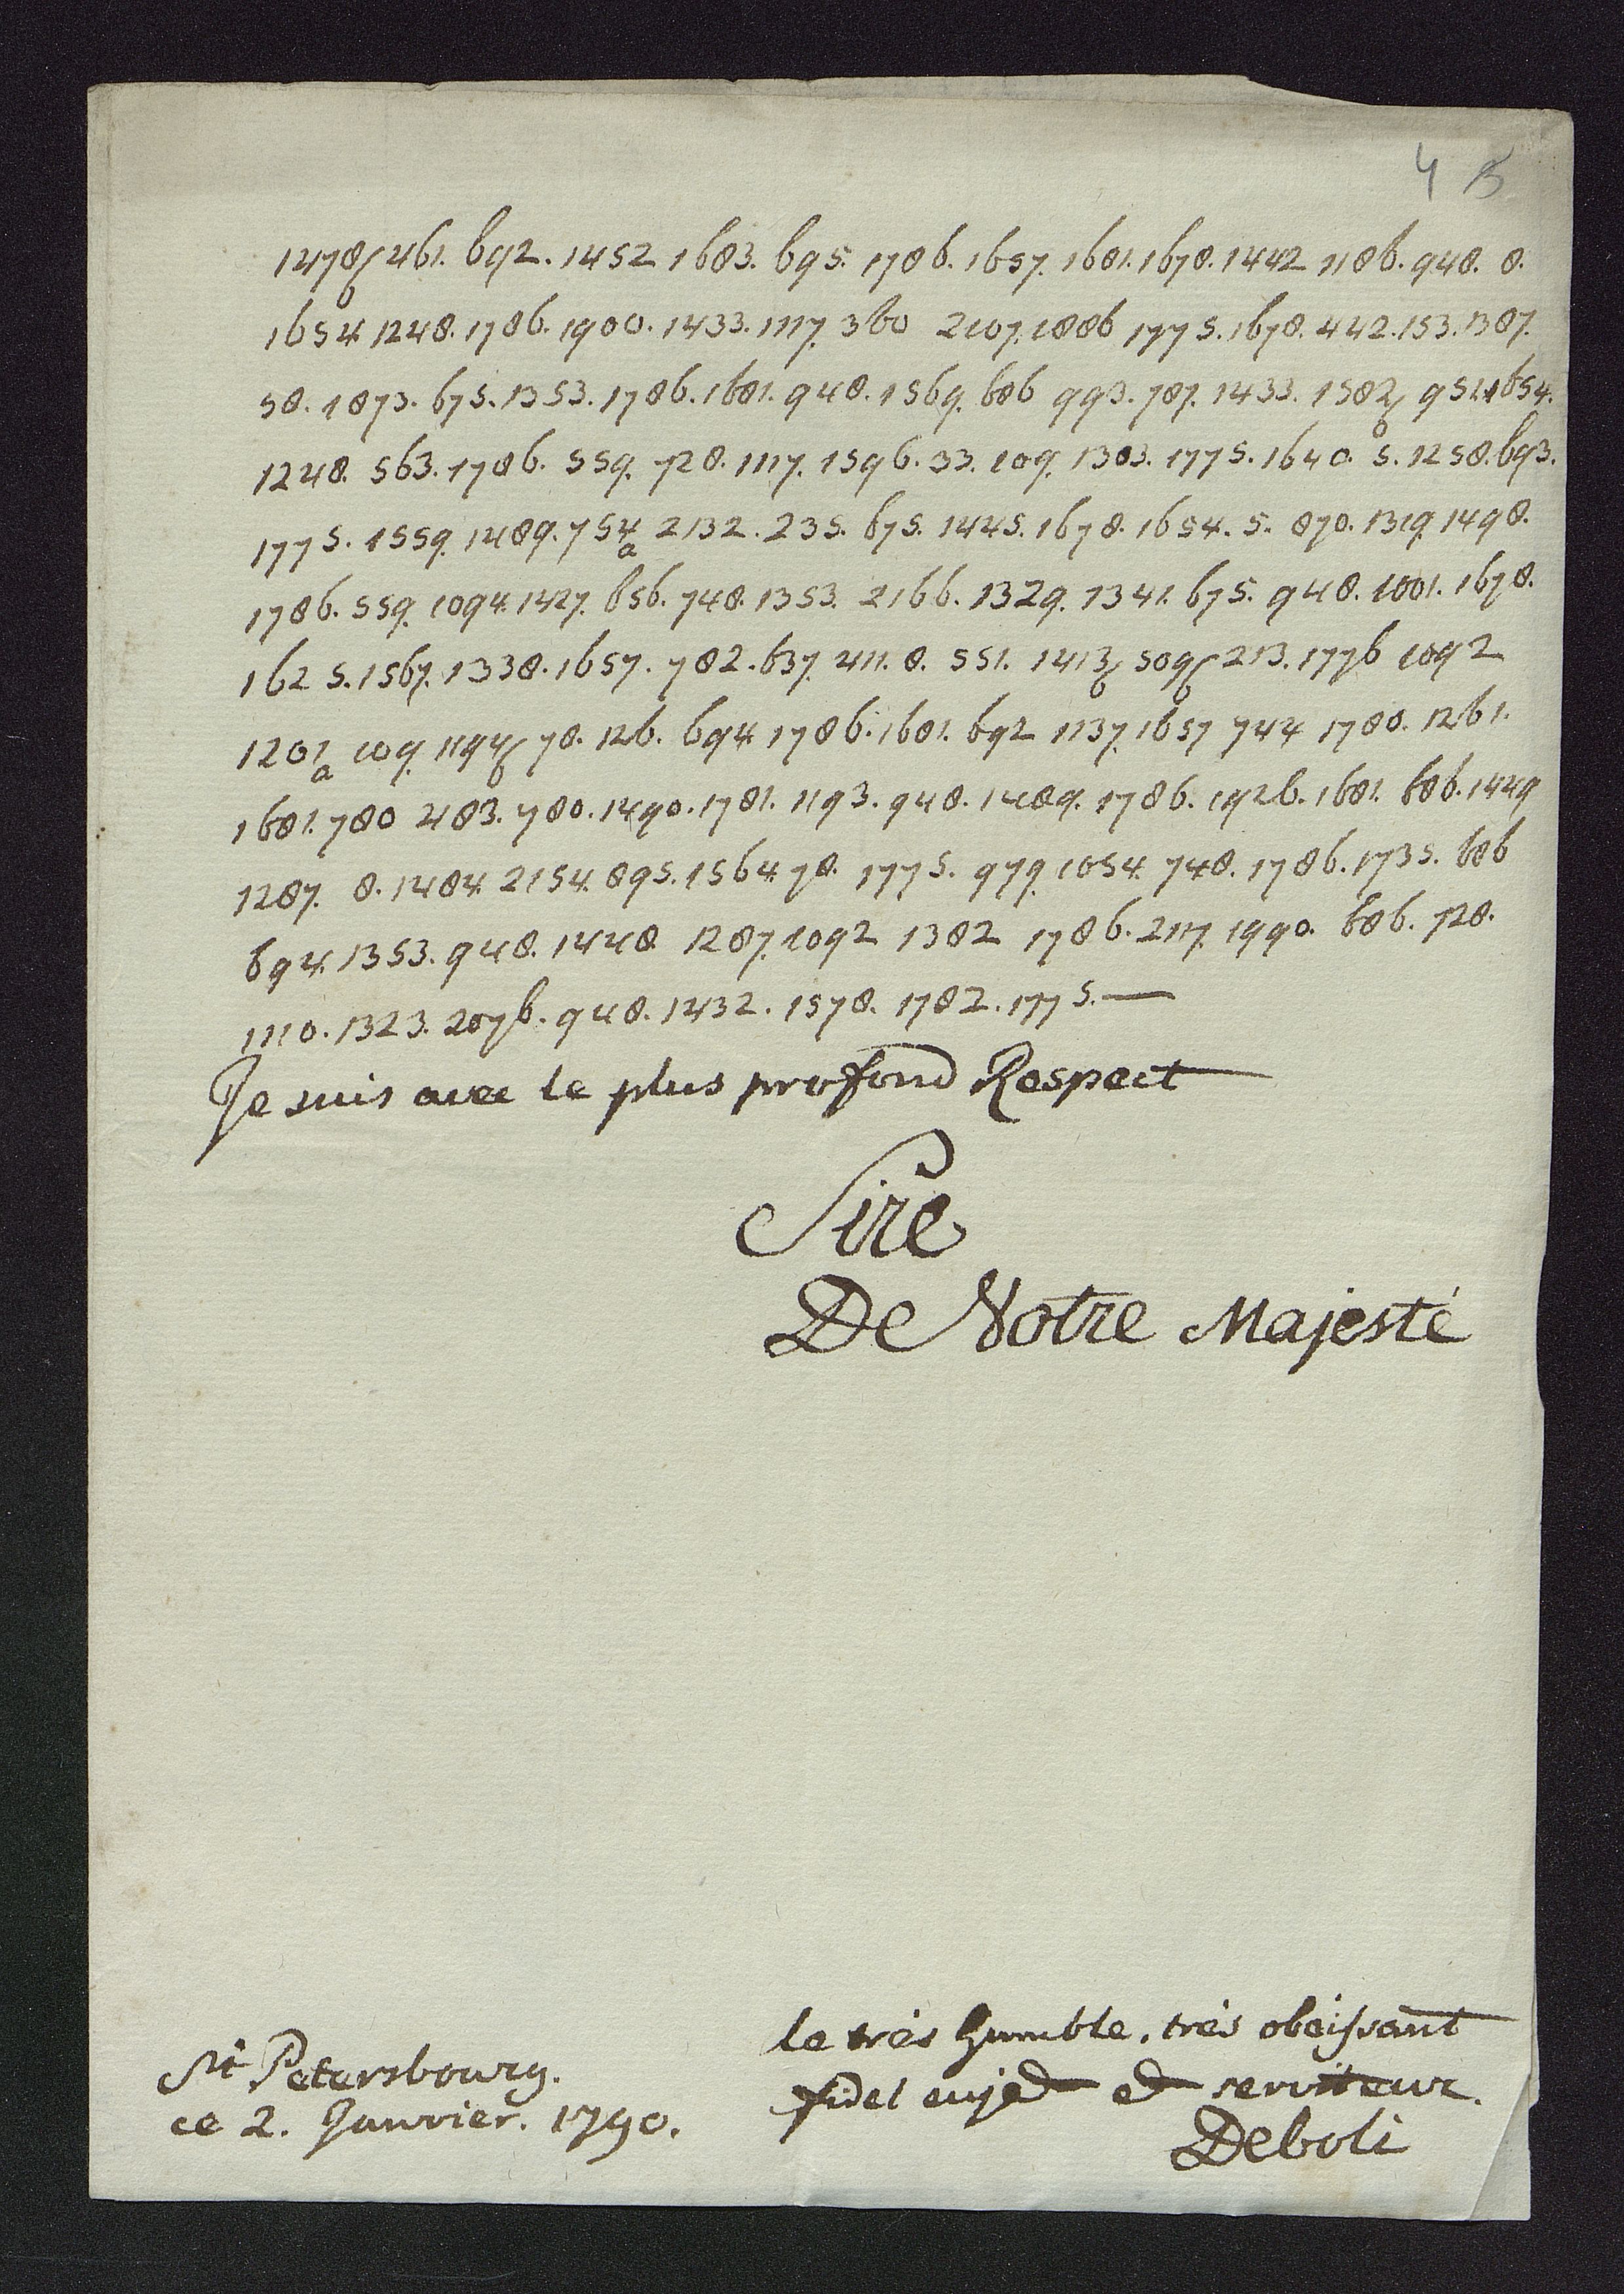 4 5
1478f 461. 692. 1452 1683. 695. 1786. 1657. 1681. 1678. 1442 1186. 948. 8.
1654. 1248. 1786. 1900. 1433. 1117. 360 2107. 1886 1775. 1678. 442. 153. 1387.
58. 1873. 675. 1353. 1786. 1681. 948. 1569. 686 993. 787. 1433. 1582f 951. 1654.
1248. 563. 1786. 559. 728. 1117. 1596. 33. 109. 1303. 1775. 1640. 5. 1258. 693.
1775. 1559. 1489. 754a 2132. 235. 675. 1445. 1678. 1654. 5. 870. 1319. 1498.
1786. 559. 1094. 1427. 656. 748. 1353. 2166. 1329. 1341. 675. 948. 1001. 1678.
1625. 1567. 1338. 1657. 782. 637. 411. 8. 551. 1413f 509f 213. 1776 1092
1201a 109. 1194f 78. 126. 694. 1786. 1681. 692 1137. 1657 744 1780. 1261.
1681. 780 483. 780. 1490. 1781. 1193. 948. 1489. 1786. 1926. 1681. 686. 1449
1287. 8. 1484. 2154. 895. 1564. 78. 1775. 979. 1054. 748. 1786. 1735. 686
694. 1353. 948. 1448. 1287. 1092 1382 1786. 217. 1990. 686. 728.
1110. 1323. 2076. 948. 1432. 1578. 1782. 1775.—
Je suis avec le plus profond Respect
Sire
De Votre Majesté
le très humble, très obeissant
fidel sujet et serviteur.
Deboli
St Petersbourg.
ce 2. Janvier. 1790.